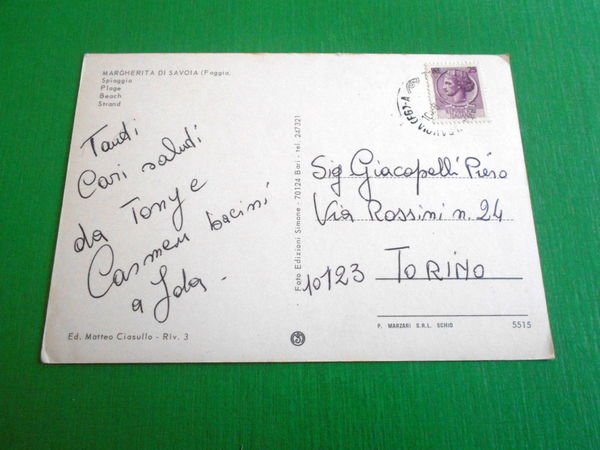 MARGHERITA DI SAVOIA (Foggia)
Spiaggia
Plage
Beach
Strand
Tanti
Cari saluti
da Tony e
Carmen bacini
a Ida
Ed. Matteo Ciasullo - Riv. 3
Foto Edizioni Simone - 70124 Bari - tel. 247321
Sig Giacopelli Piero
Via Rossini n. 24
10123 TORINO
P. MARZARI S.R.L. SCHIO
5515